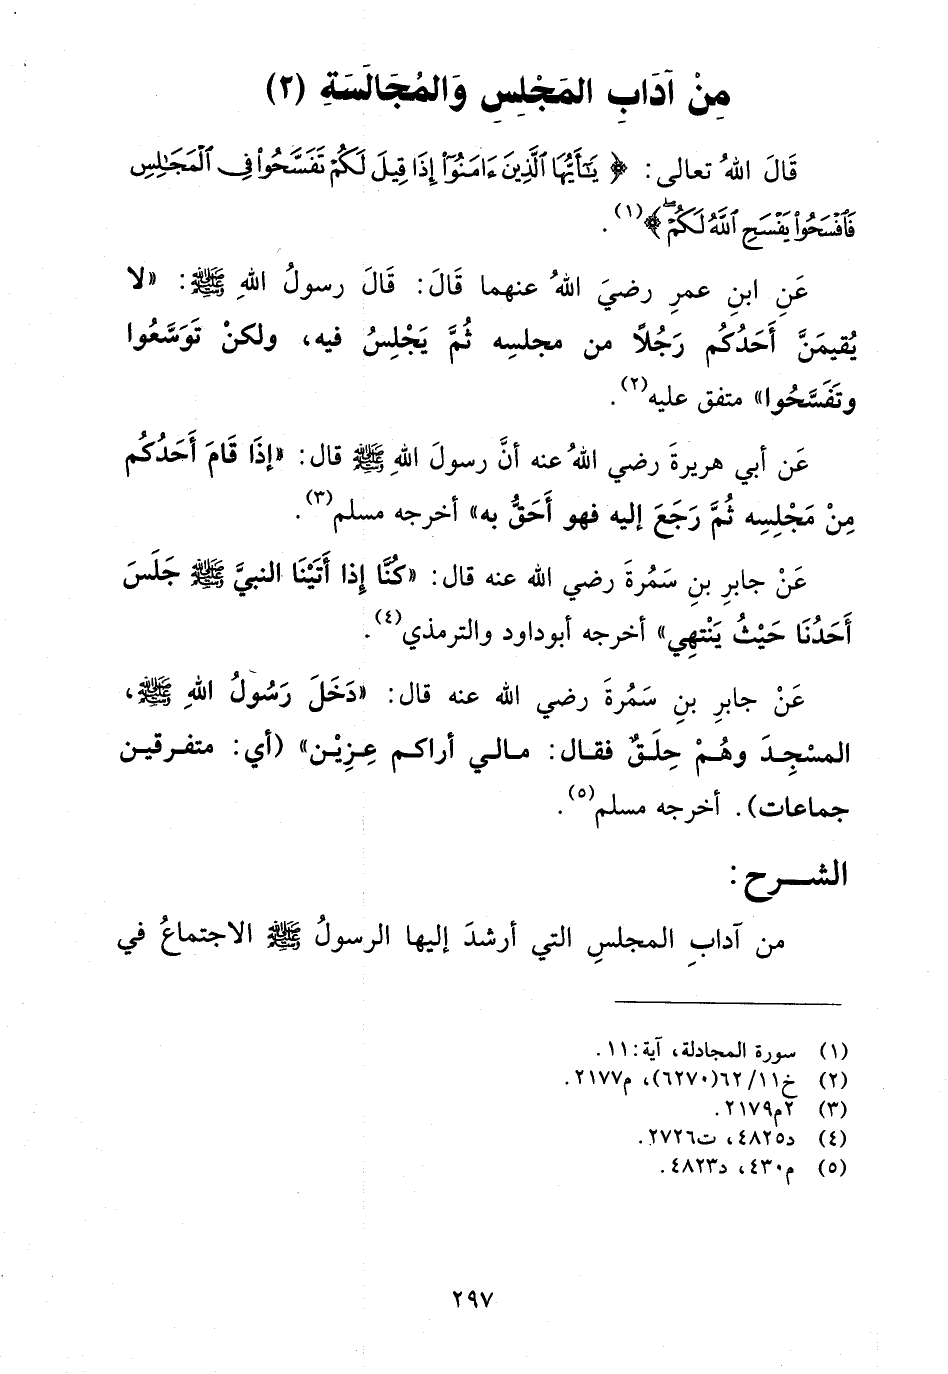 مِنْ آدَابِ المَجْلِسِ وَالمُجَالَسَةِ (٢)
قَالَ اللهُ تعالى: ﴿ يَٰٓأَيُّهَا ٱلَّذِينَ ءَامَنُوٓا۟ إِذَا قِيلَ لَكُمْ تَفَسَّحُوا۟ فِى ٱلْمَجَٰلِسِ
فَٱفْسَحُوا۟ يَفْسَحِ ٱللَّهُ لَكُمْ ۖ ﴾(١).
عَنِ ابنِ عمرِ رضيَ اللهُ عنهما قَالَ: قَالَ رسولُ اللهِ ﷺ: «لا
يُقيمَنَّ أَحَدُكُم رَجُلاً من مجلسِه ثُمَّ يَجْلِسُ فيه، ولكنْ تَوَسَّعُوا
وتَفَسَّحُوا» متفق عليه(٢).
عَن أبي هريرةَ رضي اللهُ عنه أنَّ رسولَ اللهِ ﷺ قال: «إذَا قَامَ أَحَدُكُم
مِنْ مَجْلِسِه ثُمَّ رَجَعَ إليه فهو أَحَقُّ به» أخرجه مسلم(٣).
عَنْ جابرِ بنِ سَمُرةَ رضي الله عنه قال: «كُنَّا إِذا أَتَيْنَا النبيَّ ﷺ جَلَسَ
أَحَدُنَا حَيْثُ يَنْتهِي» أخرجه أبوداود والترمذي(٤).
عَنْ جابرِ بنِ سَمُرةَ رضي الله عنه قال: «دَخَلَ رَسُولُ اللهِ ﷺ،
المسْجِدَ وهُمْ حِلَقٌ فقال: مالي أراكم عِزِيْن» (أي: متفرقين
جماعات). أخرجه مسلم(٥).
الشرح:
من آدابِ المجلسِ التي أرشدَ إليها الرسولُ ﷺ الاجتماعُ في
(١) سورة المجادلة، آية: ١١.
(٢) خ١١/ ٦٢(٦٢٧٠)، م٢١٧٧.
(٣) ٢م٢١٧٩.
(٤) د٤٨٢٥، ت٢٧٢٦.
(٥) م٤٣٠، د٤٨٢٣.
٢٩٧